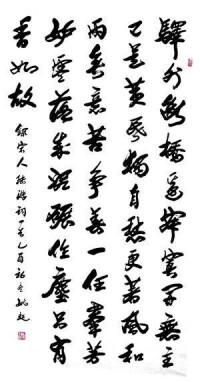 驛外斷橋邊寂寞開無主
已是黃昏獨自愁更著風和
雨無意苦爭春一任羣芳
妒零落成泥碾作塵只有
香如故
錄宋人陸游詞一首乙酉